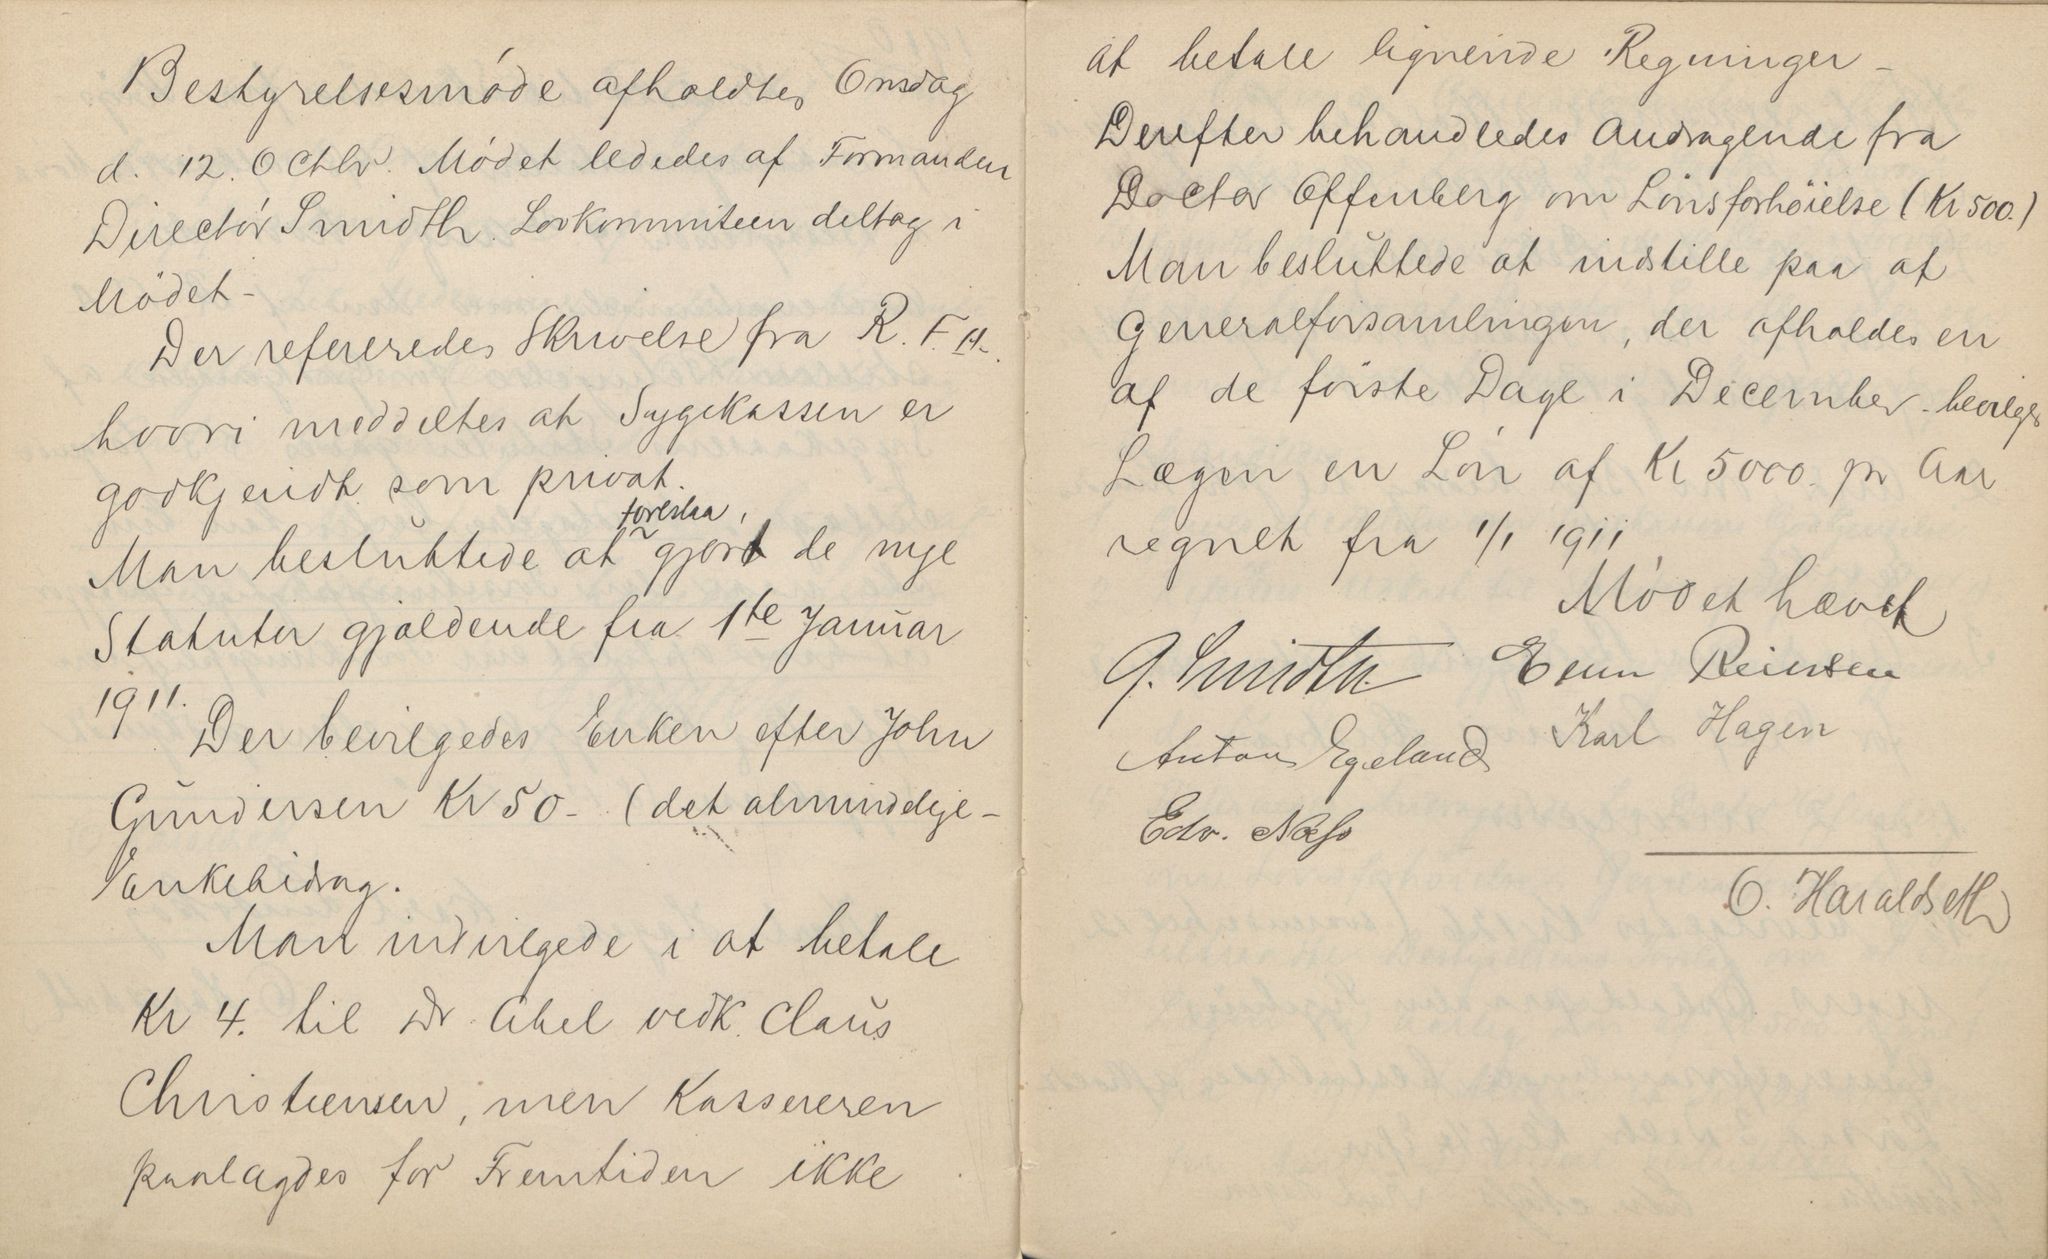 Bestyrelsesmøde afholdtes Onsdag
d. 12. Octbr. Mødet lededes af Formanden
Directør Smidth. Lovkommiteen deltog i
Mødet -
Der refereredes Skrivelse fra R. F. A.
hvori meddeltes at Sygekassen er
godkjendt som privat.
foreslaa
Man besluttede at gjort de nye
Statuter gjældende fra 1te Januar
1911.
Der bevilgedes Enken efter John
Gundersen Kr 50 - (det almindelige -
Enkebidrag.
Man indvilgede i at betale
Kr 4. til Dr Abel vedk. Claus
Christensen, men Kassereren
paalagdes for Fremtiden ikke
at betale lignende Regninger -
Derefter behandledes Andragende fra
Doctor Offenberg om Lönsforhöielse (Kr 500.)
Man besluttede at indstille paa at
Generalforsamlingen, der afholdes en
af de förste Dage i December - bevilges
Lægen en Lön af Kr 5000. pr Aar
regnet fra 1/1 1911
Mödet hævet
G. Smidth. Enun Reiersen
Anton Egeland Karl Hagen
Edv. Næss
O. Haraldseth